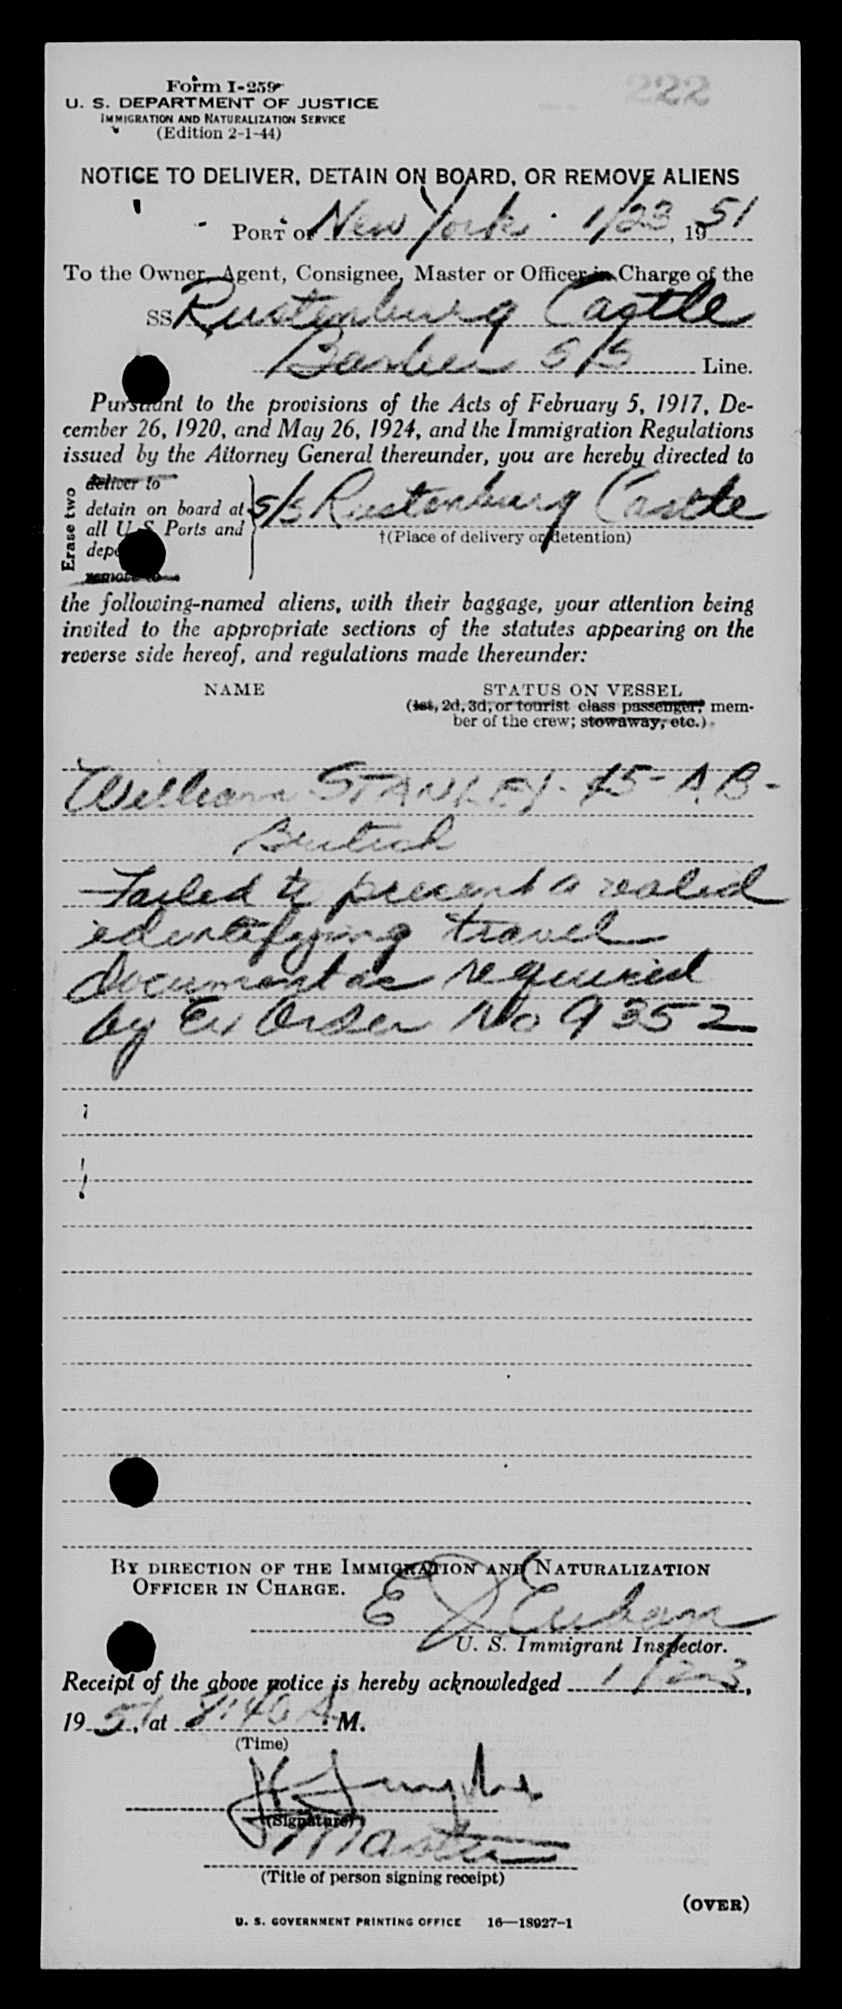 222
Form I-259
U. S. DEPARTMENT OF JUSTICE
IMMIGRATION AND NATURALIZATION SERVICE
(Edition 2-1-44)
NOTICE TO DELIVER, DETAIN ON BOARD, OR REMOVE ALIENS
PORT OF New York 1/23, 1951
To the Owner, Agent, Consignee, Master or Officer in Charge of the
SS Rustenburg Castle
Barber S/S Line.
Pursuant to the provisions of the Acts of February 5, 1917, De-
cember 26, 1920, and May 26, 1924, and the Immigration Regulations
issued by the Attorney General thereunder, you are hereby directed to
Erase two
deliver to
detain on board at S/S Rustenburg Castle
all U. S. Ports and †(Place of delivery or detention)
remove to
the following-named aliens, with their baggage, your attention being
invited to the appropriate sections of the statutes appearing on the
reverse side hereof, and regulations made thereunder:
NAME STATUS ON VESSEL
(1st, 2d, 3d, or tourist class passenger, mem-
ber of the crew; stowaway, etc.)
William STANLEY - 45 - A.B -
British
Failed to present a valid
identifying travel
document as required
by Ex Order No 9352
BY DIRECTION OF THE IMMIGRATION AND NATURALIZATION
OFFICER IN CHARGE.
E
U. S. Immigrant Inspector.
Receipt of the above notice is hereby acknowledged 1/23,
1951, at 8:40 A. M.
(Time)
(Signature)
Master
(Title of person signing receipt)
(OVER)
U. S. GOVERNMENT PRINTING OFFICE 16—18927-1